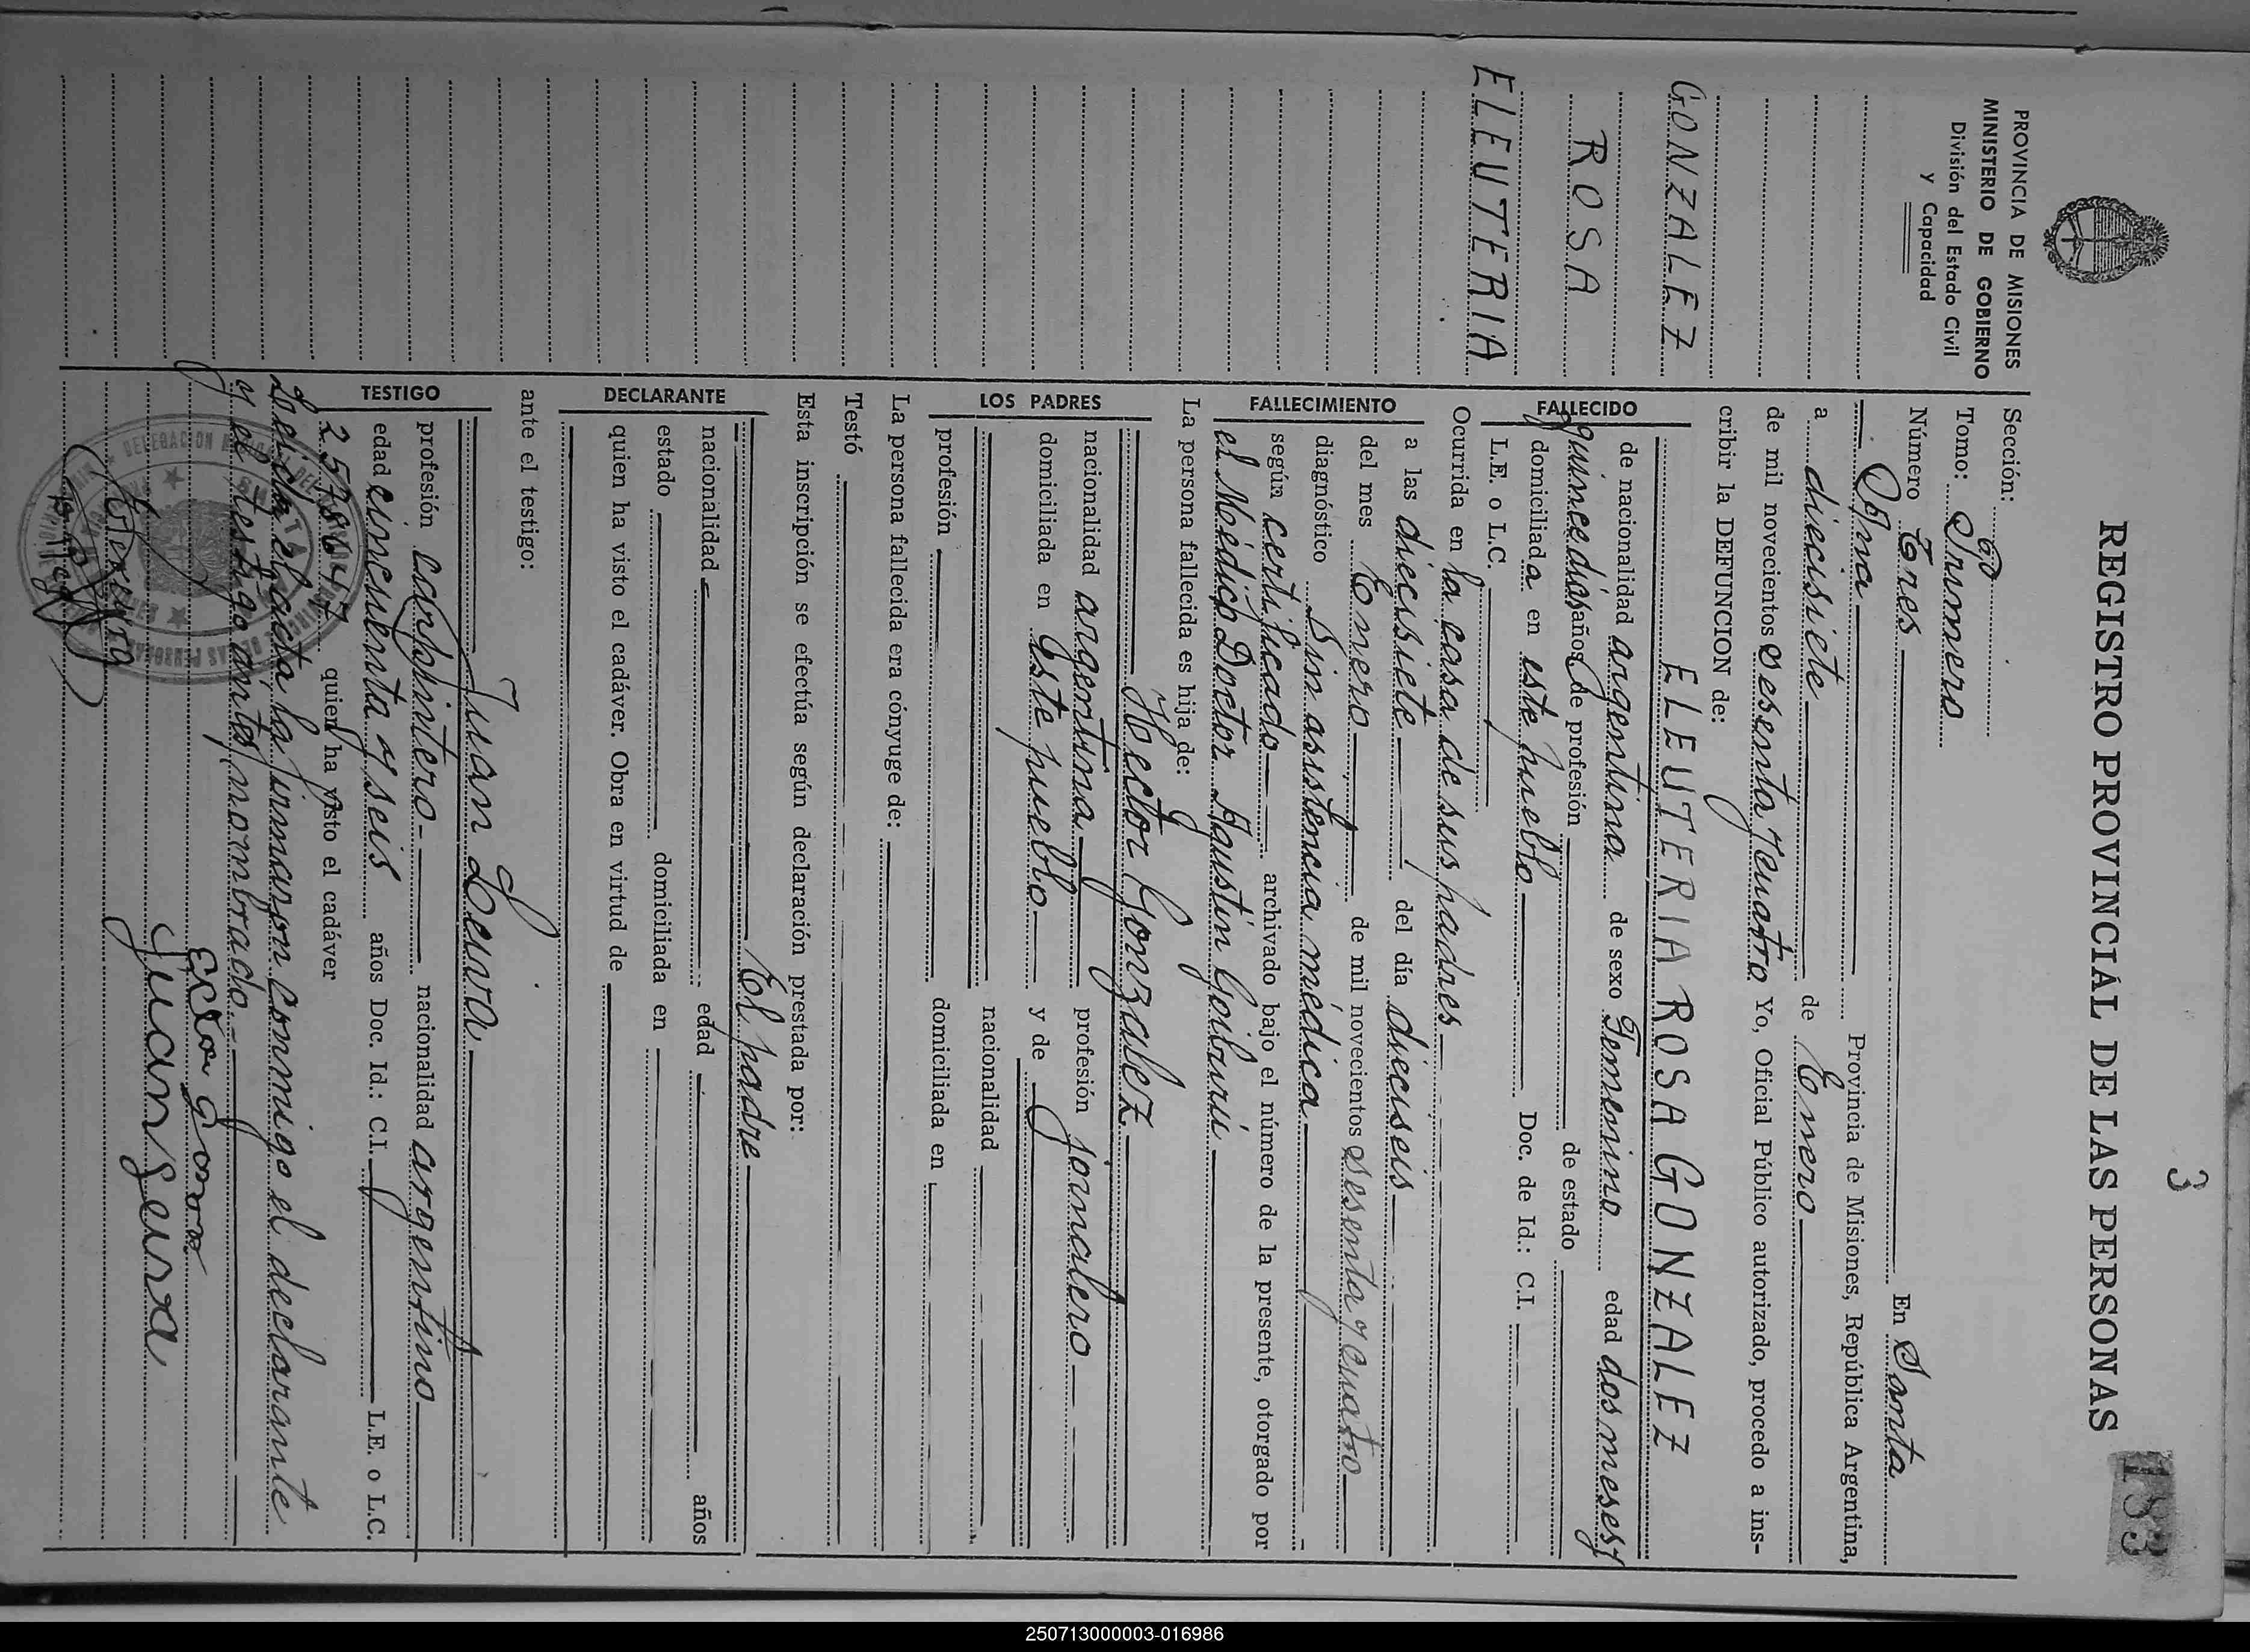 3
REGISTRO PROVINCIAL DE LAS PERSONAS
133
PROVINCIA DE MISIONES
MINISTERIO DE GOBIERNO
División del Estado Civil
y Capacidad
GONZALEZ
ROSA
ELEUTERIA
Sección:
Tomo: Primero
Número Tres En Santa
Ana Provincia de Misiones, República Argentina,
a diecisiete de Enero
de mil novecientos sesenta y cuatro Yo, Oficial Público autorizado, procedo a ins-
cribir la DEFUNCION de:
FALLECIDO
ELEUTERIA ROSA GONZALEZ
de nacionalidad argentina de sexo Femenino edad dos meses y
quince días años de profesión de estado
domiciliada en este pueblo Doc. de Id.: C.I.
L.E. o L.C.
Ocurrida en la casa de sus padres
FALLECIMIENTO
a las diecisiete del día dieciseis
del mes Enero de mil novecientos sesenta y cuatro
diagnóstico Sin asistencia médica
según certificado archivado bajo el número de la presente, otorgado por
el Médico Doctor Agustín Goiburú
La persona fallecida es hija de:
LOS PADRES
Hector Gonzalez
nacionalidad argentina profesión jornalero
domiciliada en este pueblo y de
nacionalidad
profesión domiciliada en
La persona fallecida era cónyuge de:
Testó
Esta inscripción se efectúa según declaración prestada por:
DECLARANTE
El padre
nacionalidad edad años
estado domiciliada en
quien ha visto el cadáver. Obra en virtud de
ante el testigo:
TESTIGO
Juan Leura
profesión carpintero nacionalidad argentino
edad cincuenta y seis años Doc. Id.: C.I. L.E. o L.C.
quien ha visto el cadáver
Leída el acta, la firmaron conmigo el declarante
y el testigo antes nombrado.
Juan Leura
250713000003-016986